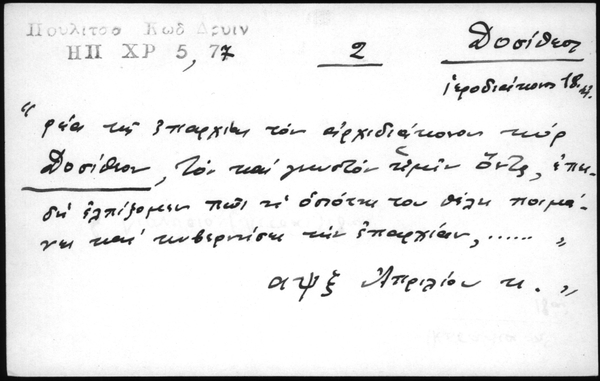 Πουλίτσα Κωδ Δρυιν
ΗΠ ΧΡ 5, 77
2
Δοσίθεος
ἱεροδιάκονος 18
"ρέα τῆς ἐπαρχίας τὸν ἀρχιδιάκονον κὺρ
Δοσίθεον, τὸν καὶ γνωστὸν ἡμῖν ὄντα, ἐπει-
δὴ ἐλπίζομεν πῶς ἡ ὁσιότης του θέλει ποιμά-
νει καὶ κυβερνήσει τὴν ἐπαρχίαν, ...... "
αψξ Ἀπριλίου κ. "